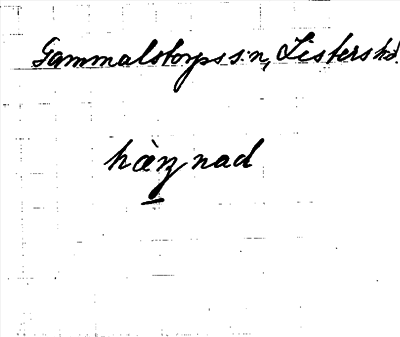 Gammalstorps s:n, Listers hd.
hæŋnad